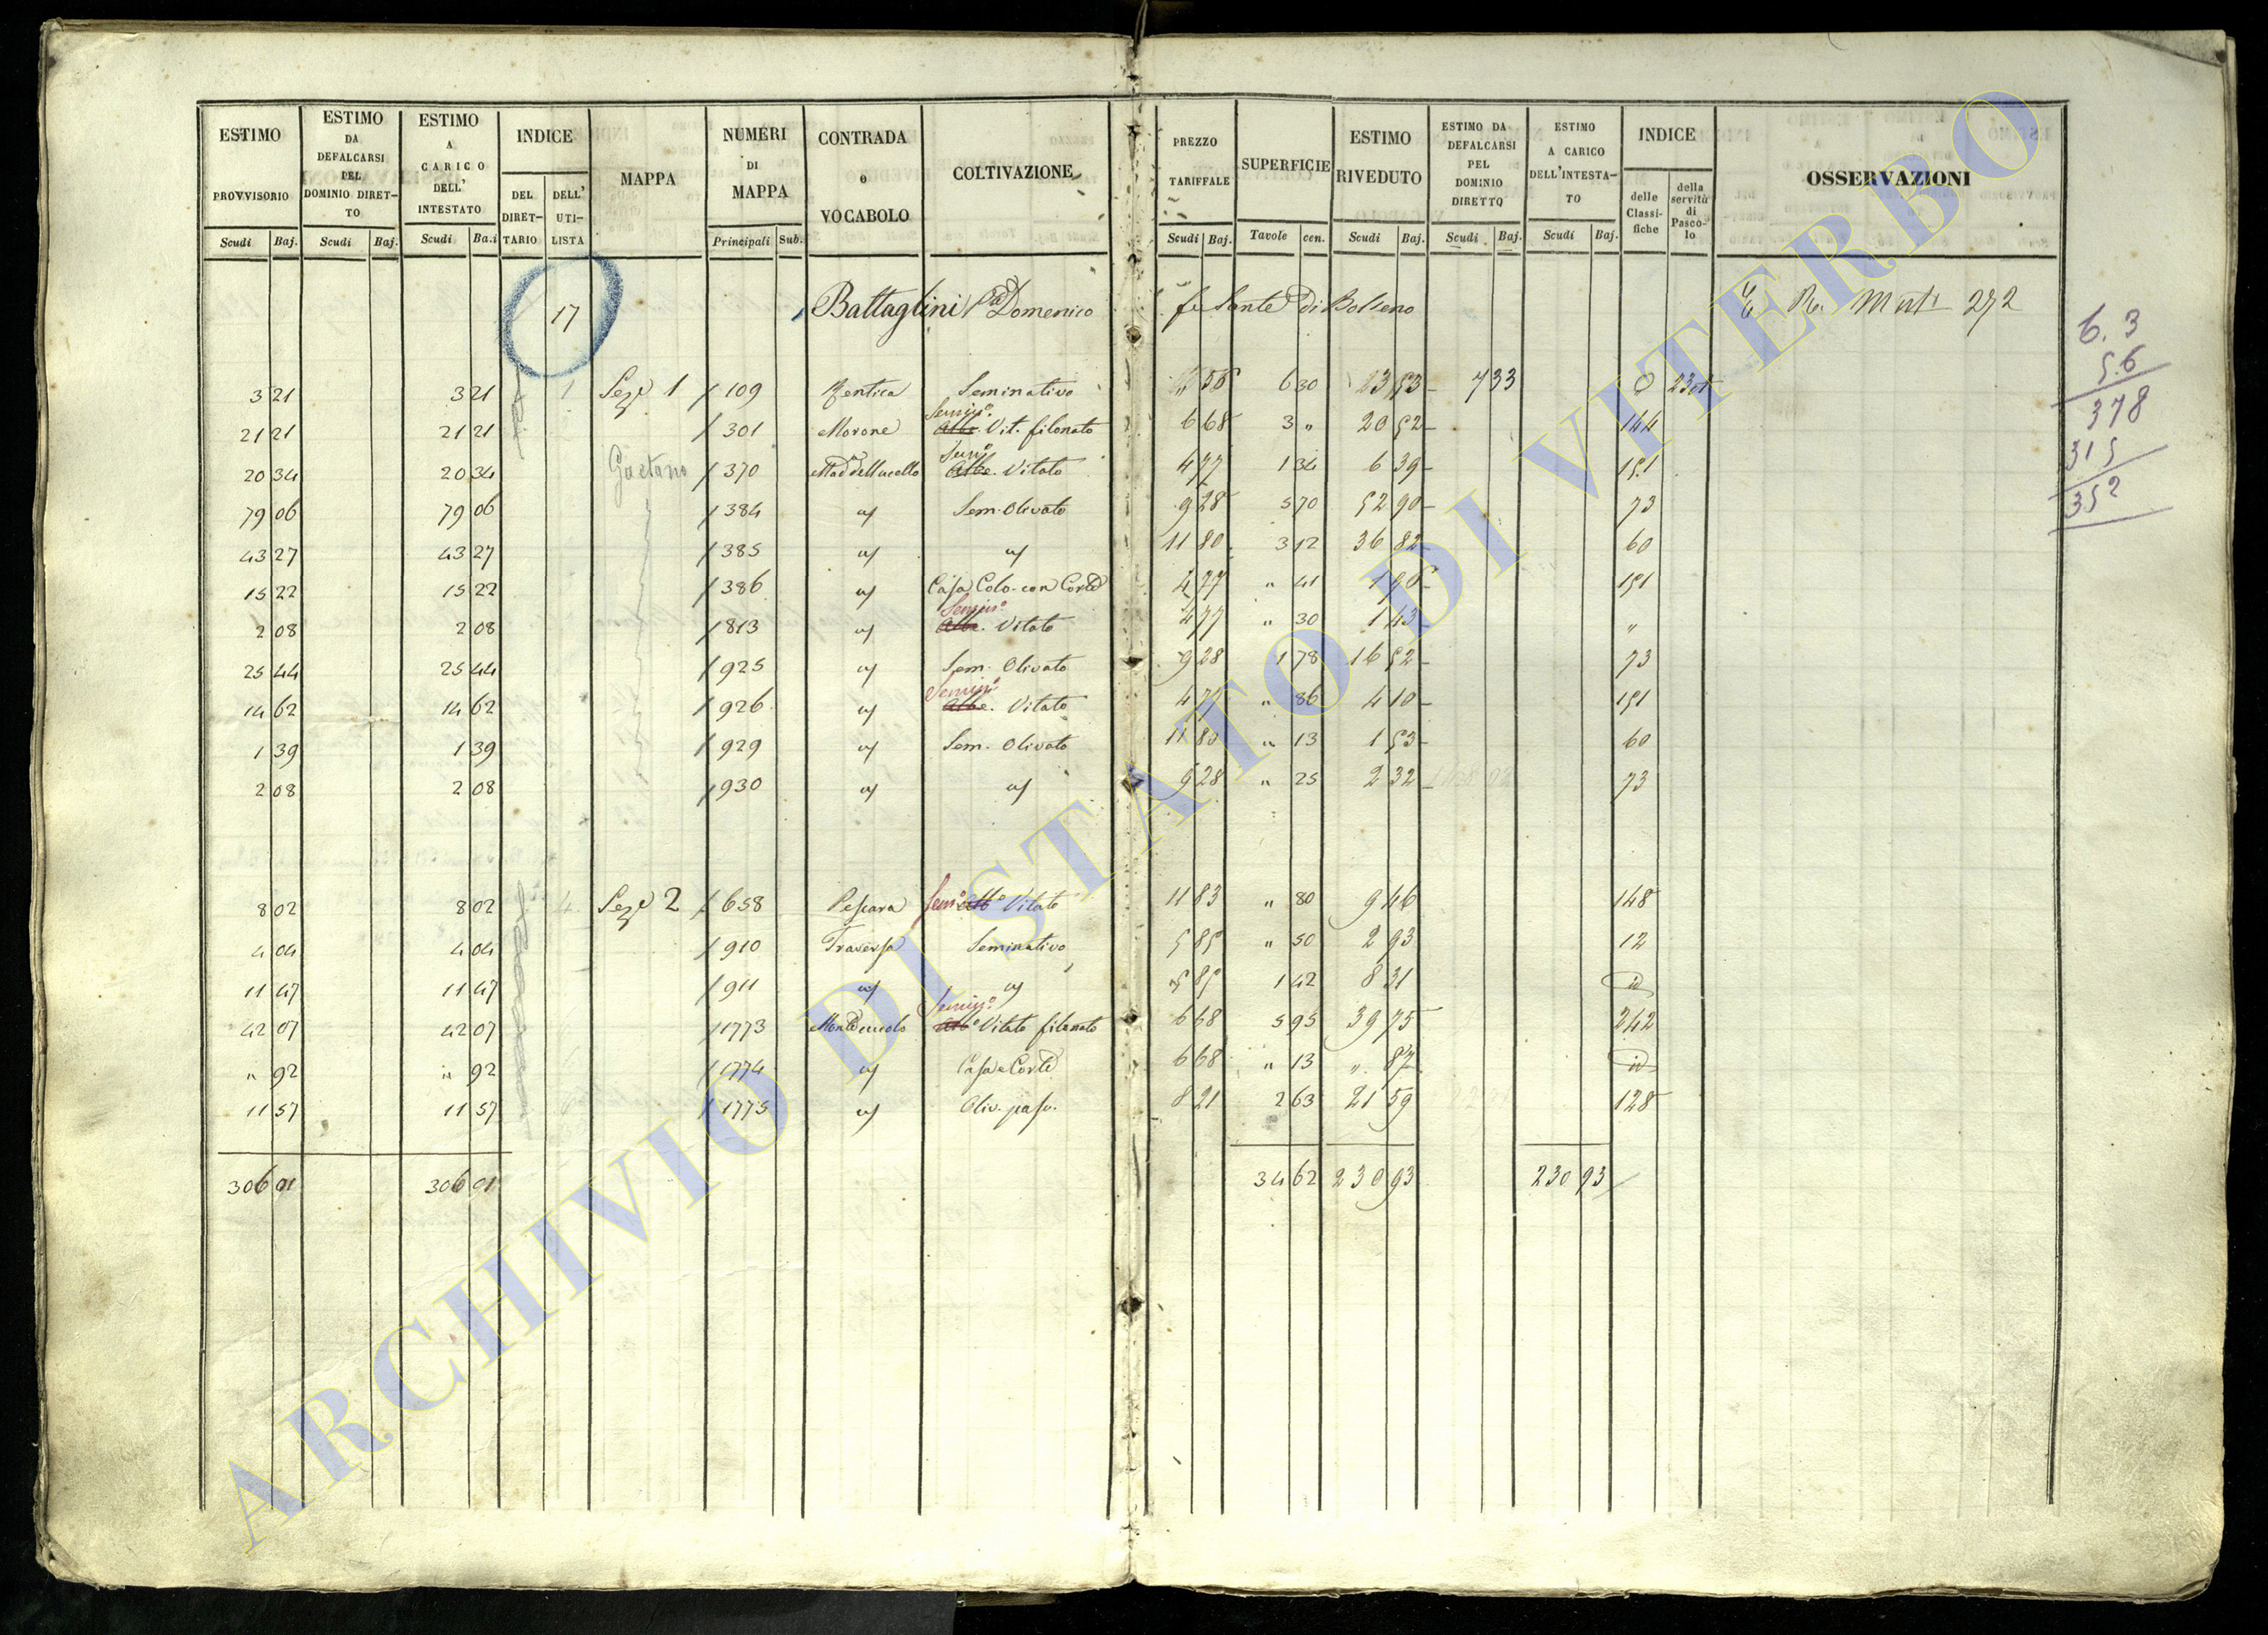 ESTIMO PROVVISORIO | ESTIMO DA DEFALCARSI PEL DOMINIO DIRET-TO | ESTIMO A CARICO DELL' INTESTATO | INDICE | MAPPA | NUMERI DI MAPPA | CONTRADA o VOCABOLO | COLTIVAZIONE | PREZZO TARIFFALE | SUPERFICIE | ESTIMO RIVEDUTO | ESTIMO DA DEFALCARSI PEL DOMINIO DIRETTO | ESTIMO A CARICO DELL'INTESTA-TO | INDICE | OSSERVAZIONI
DEL DIRET-TARIO | DELL' UTI-LISTA | delle Classi-fiche | della servitù di Pasco-lo
Scudi | Baj. | Scudi | Baj. | Scudi | Ba.i | Principali | Sub. | Scudi | Baj. | Tavole | cen. | Scudi | Baj. | Scudi | Baj. | Scudi | Baj.
17 Battaglini Domenico fu Sante di Bolseno 272
3 21 | 3 21 | 1 | Sez. 1 | 109 | Seminativo | 6 30 | 7 33
21 21 | 21 21 | 301 | Morone | Semin.º Vit. filonato | 6 68 | 3 " | 20 52 | 144
20 34 | 20 34 | Gaetano | 370 | Vitato | 4 77 | 1 34 | 6 39 | 151
79 06 | 79 06 | 384 | Sem. Olivato | 9 28 | 5 70 | 52 90 | 73
43 27 | 43 27 | 385 | 11 80 | 3 12 | 36 82 | 60
15 22 | 15 22 | 386 | Casa Colo. con Corte | 4 77 | " 41 | 1 96 | 151
2 08 | 2 08 | 813 | Semin.º Vitato | 4 77 | " 30 | 1 43 | "
25 44 | 25 44 | 925 | Sem. Olivato | 9 28 | 1 78 | 16 52 | 73
14 62 | 14 62 | 926 | Semin.º Vitato | 4 77 | " 86 | 4 10 | 151
1 39 | 1 39 | 929 | Sem. Olivato | 11 80 | " 13 | 1 53 | 60
2 08 | 2 08 | 930 | 9 28 | " 25 | 2 32 | 73
8 02 | 8 02 | 4 | Sez. 2 | 658 | Pescara | Sem.º Vitato | 11 83 | " 80 | 9 46 | 148
4 04 | 4 04 | 910 | Traversa | Seminativo | 5 85 | " 50 | 2 93 | 12
11 47 | 11 47 | 911 | 5 85 | 1 42 | 8 31 | id
42 07 | 42 07 | 1773 | Semin.º Vitato filonato | 6 68 | 5 95 | 39 75 | 242
" 92 | " 92 | 1774 | Casa e Corte | 6 68 | " 13 | " 87 | id
11 57 | 11 57 | 1775 | Oliv. pasc. | 8 21 | 2 63 | 21 59 | 128
306 01 | 306 01 | 34 62 | 230 93 | 230 93
6.3
5.6
378
315
352
ARCHIVIO DI STATO DI VITERBO